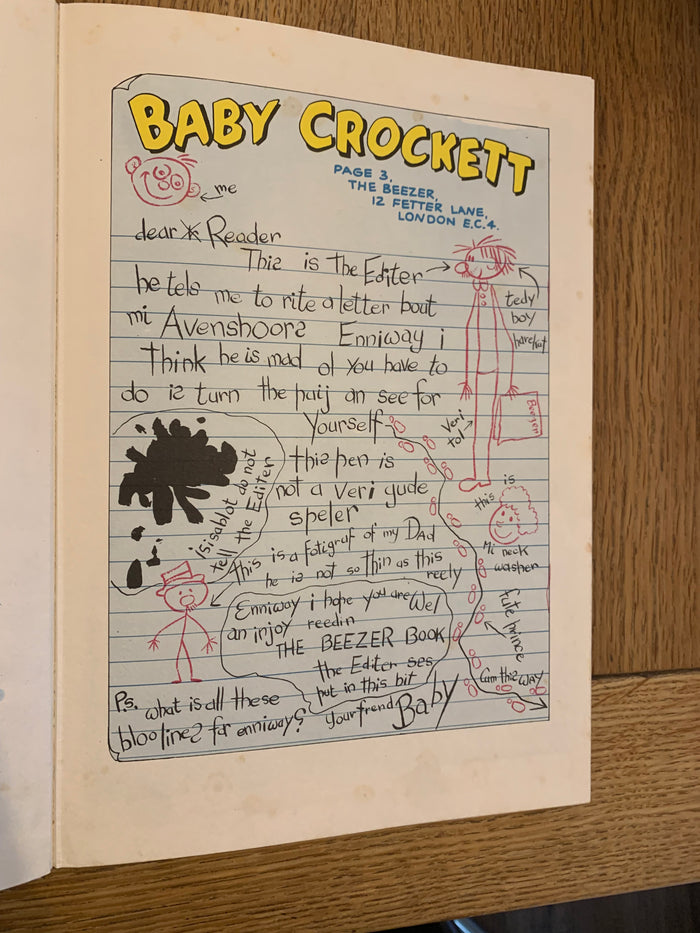 BABY CROCKETT
PAGE 3,
THE BEEZER,
12 FETTER LANE,
LONDON E.C.4.
me
dear Reader
This is The Editer
he tels me to rite a letter bout
mi Avenshoors Enniway i
Think he is mad ol you have to
do is turn the paij an see for
Yourself
tedy
boy
harekut
Veri
tol
Beezer
this pen is
not a veri gude
speler
isisablot do not
tell the Editer
This is a fotigraf of my Dad
he is not so thin as this
reely
this is
Mi neck
washer
Enniway i hope you are Wel
an injoy reedin
THE BEEZER BOOK
the Editer ses
put in this bit
fute prince
Cum this way
Ps. what is all these
bloo lines for enniway?
your frend Baby